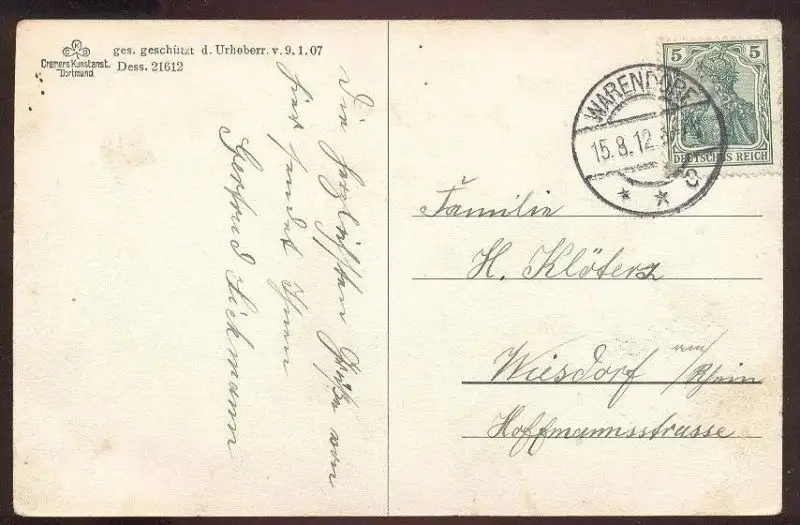 Cramers Kunstanst.
Dortmund
ges. geschützt d. Urheberr. v. 9. 1. 07
Dess. 21612
Die herzlichsten Grüße von
hier sendet Ihnen
Gertrud Sickmann
5 5
DEUTSCHES REICH
WARENDORF
15.8.12.
* *
Familie
H. Klöterz
Wiesdorf am/Rhein
Hoffmannsstrasse